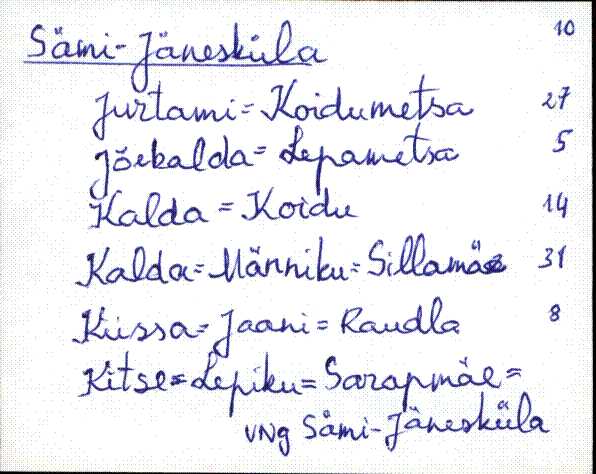 Sämi-Jänesküla 10
Jurtami = Koidumetsa 27
Jõekalda = Lepametsa 5
Kalda = Koidu 14
Kalda = Männiku = Sillamäe 31
Kiissa = Jaani = Raudla 8
Kitse = Lepiku = Sarapmäe =
vng Sämi-Jänesküla